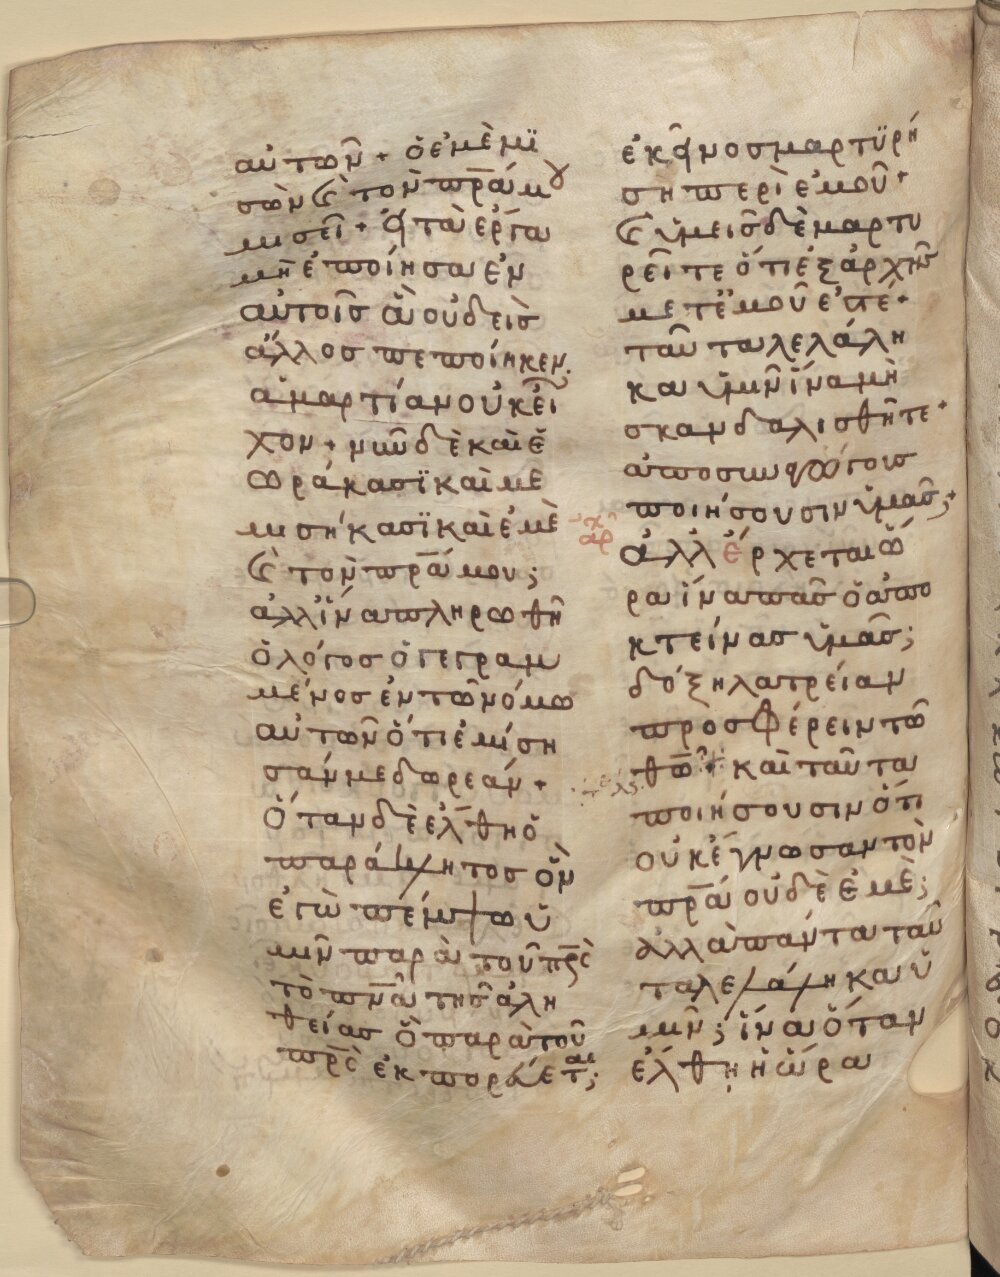 αὐτων + ὁ ἐμὲ μϊ
σῶν καὶ τον π̅ρ̅α̅ μου
μισεῖ + εἰ τὰ ἔργα
μὴ ἐποίησα ἐν
αὐτοῖσ ἃ οὐδεὶσ
ἄλλοσ πεποίηκεν.
ἁμαρτίαν οὐκ εἶ
χον + νῦν δὲ καὶ ἑ
ωράκασϊ καὶ με
μισήκασϊ καὶ ἐμὲ
καὶ τὸν π̅ρ̅α̅ μου;
ἀλλ ἵνα πληρωθῆ
ὁ λόγοσ ὁ γεγραμ
μένοσ ἐν τῶ νόμω
αὐτῶν ὅτι ἐμίση
σάν με δωρεάν +
Ὅταν δὲ ἔλθη ὁ
παράκλητοσ ὃν
ἐγὼ πέμψω ὑ
μῖν παρὰ τοῦ π̅ρ̅ς̅
τὸ π̅ν̅α̅ τῆσ ἀλη
θείασ ὃ παρὰ τοῦ
π̅ρ̅ς̅ ἐκπορεύεται;
ἐκεῖνοσ μαρτϋρή
ση περὶ ἐμοῦ +
καὶ ὑμεῖσ δὲ μαρτυ
ρεῖτε ὅτι ἐξ ἀρχῆσ
μετ ἐμοῦ ἐστέ +
ταῦτα λελάλη
κα ὑμῖν ἵνα μὴ
σκανδαλισθῆτε +
ἀποσυναγώγουσ
ποιήσουσιν ὑμᾶσ; +
ἀρχ
ἀλλ ἔρχεται ὥ
ρα ἵνα πᾶσ ὁ ἀπο
κτείνασ ὑμᾶσ;
δόξη λατρείαν
προσφέρειν τῶ
θ̅ω̅ + καὶ ταῦτα
ποιήσουσιν ὅτι
οὐκ ἔγνωσαν τὸν
π̅ρ̅α̅ οὐδὲ ἐμὲ;
ἀλλὰ πάντα ταῦ
τα λελάληκα ὑ
μῖν; ἵνα ὅταν
ἔλθη ἡ ὥρα